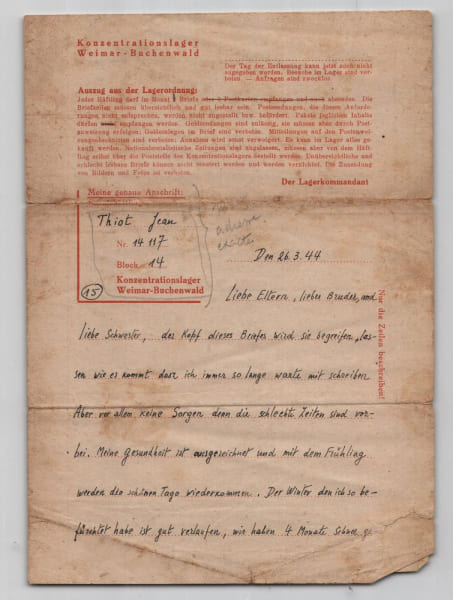 Konzentrationslager
Weimar-Buchenwald
Der Tag der Entlassung kann jetzt noch nicht
angegeben werden. Besuche im Lager sind ver-
boten. — Anfragen sind zwecklos.
Auszug aus der Lagerordnung:
Jeder Häftling darf im Monat 1 Briefe oder 2 Postkarten empfangen und auch absenden. Die
Briefzeilen müssen übersichtlich und gut lesbar sein. Postsendungen, die diesen Anforde-
rungen nicht entsprechen, werden nicht zugestellt bzw. befördert. Pakete jeglichen Inhalts
dürfen empfangen werden. Geldsendungen sind zulässig, sie müssen aber durch Post-
anweisung erfolgen; Geldeinlagen im Brief sind verboten. Mitteilungen auf den Postanwei-
sungsabschnitten sind verboten; Annahme wird sonst verweigert. Es kann im Lager alles ge-
kauft werden. Nationalsozialistische Zeitungen sind zugelassen, müssen aber von dem Häft-
ling selbst über die Poststelle des Konzentrationslagers bestellt werden. Unübersichtliche und
schlecht lesbare Briefe können nicht zensiert werden und werden vernichtet. Die Zusendung
von Bildern und Fotos ist verboten.
Der Lagerkommandant
Meine genaue Anschrift:
Thiot Jean
adresse
exacte
Nr. 14 117
Block 14
Konzentrationslager
Weimar-Buchenwald
15
Den 26.3.44
Nur die Zeilen beschreiben!
Liebe Eltern, lieber Bruder und
liebe Schwester, der Kopf dieses Briefes wird sie begreifen las-
sen wie es kommt dasz ich immer so lange warte mit schreiben
Aber vor allem keine Sorgen denn die schlechte Zeiten sind vor-
bei. Meine Gesundheit ist ausgezeichnet und mit dem Frühling
werden die schönen Tage wiederkommen. Der Winter den ich so be-
fürchtet habe ist gut verlaufen, wir haben 4 Monate Schnee ge